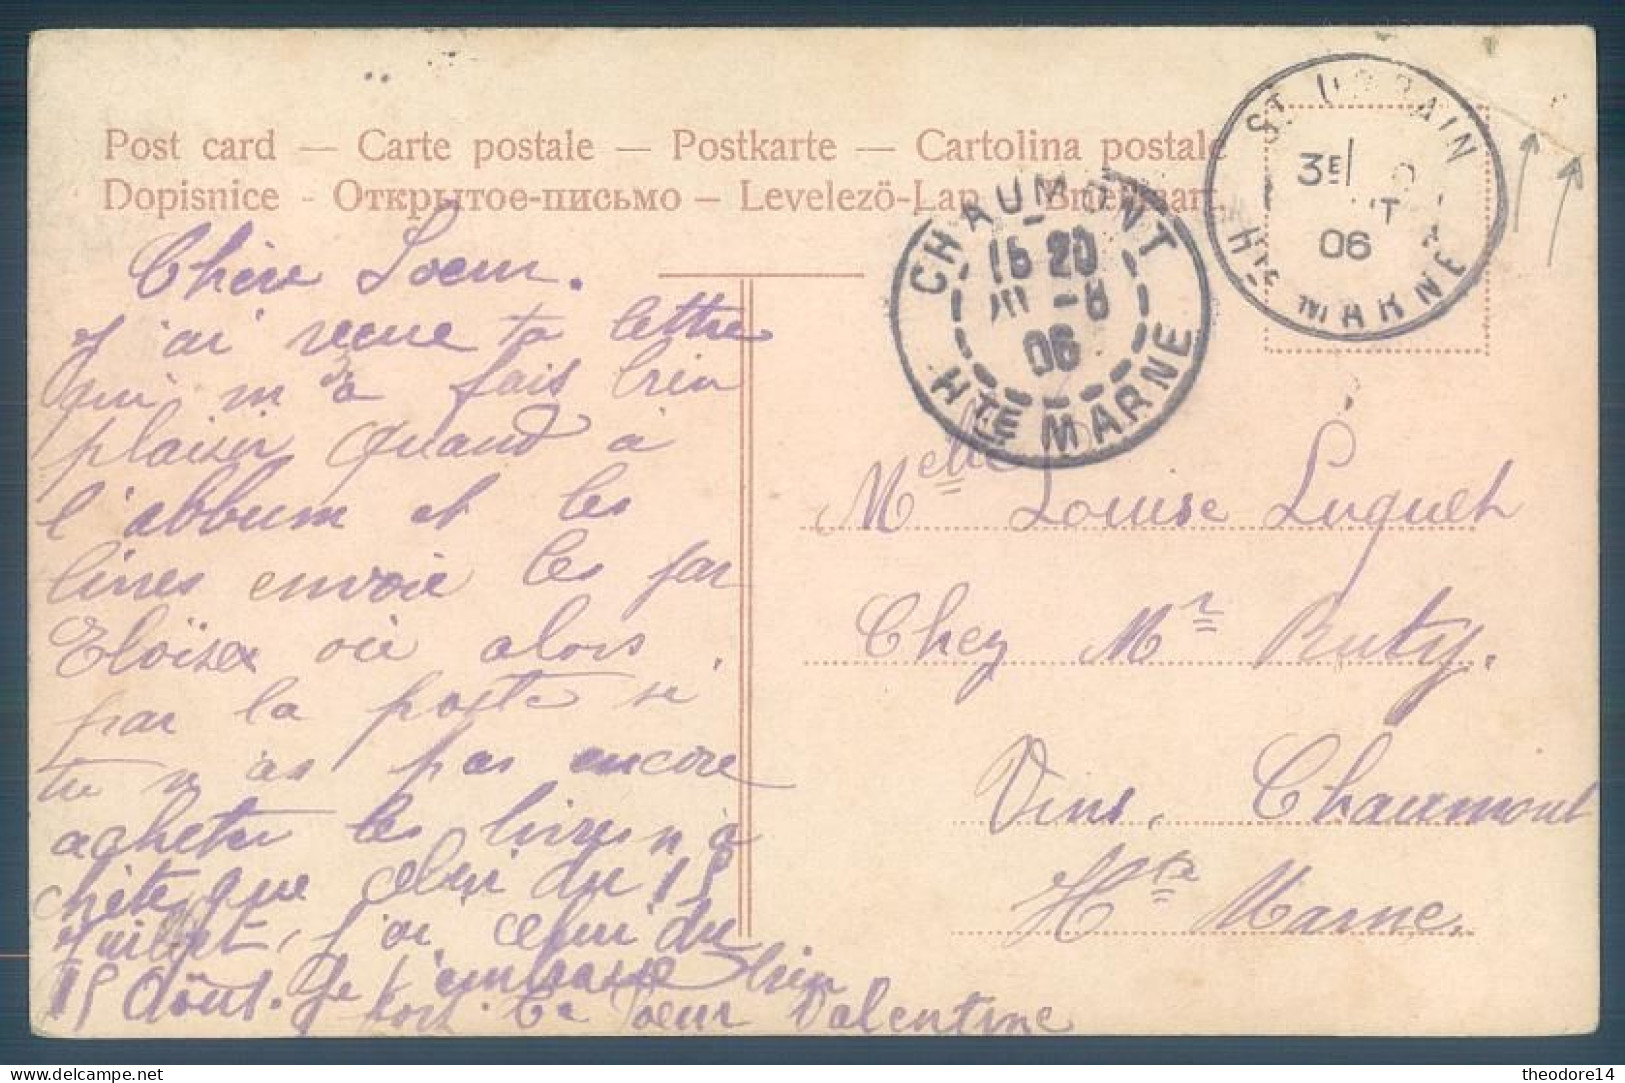 Post card — Carte postale — Postkarte — Cartolina postale
Dopisnice - Открытое-письмо — Levelezö-Lap
ST URBAIN
3E
06
HTE MARNE
CHAUMONT
15 20
-8
06
HTE MARNE
Chère Soeur.
J'ai recue ta lettre
qui m'a fais bien
plaisir Quand à
l'abbum et les
livres envoie les par
Eloïse où alors
par la poste si
tu n'as pas encore
acheter les livres n'a
chète que celui du 15
Juillet, j'ai celui du
15 Aout. Je t'embrasse bien
fort Ta Soeur Valentine
Melle Louise Luquet
Chez Mr Ruty.
Vins, Chaumont
Hte Marne.
theodore14
delcampe.net